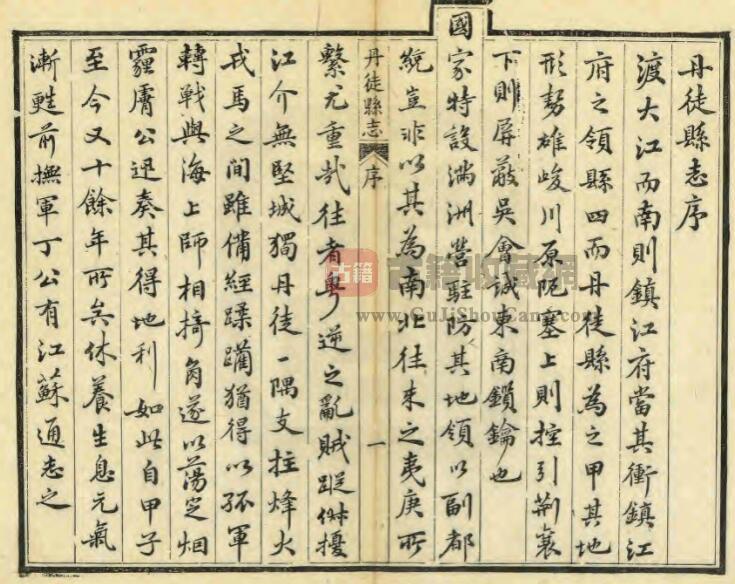 丹徒縣志序
渡大江而南則鎮江府當其衝鎮江
府之領縣四而丹徒縣為之甲其地
形勢雄峻川原阨塞上則控引荆襄
下則屏蔽吳會誠東南鎖鑰也
國家特設滿洲營駐防其地領以副都
統豈非以其為南北往來之夷庚所
丹徒縣志
序
一
繫尤重哉往者粵逆之亂賊蹤俶擾
江介無堅城獨丹徒一隅支拄烽火
戎馬之間雖備經蹂躪猶得以孤軍
轉戰與海上師相掎角遂以蕩定烟
霾膚公迅奏其得地利如此自甲子
至今又十餘年所矣休養生息元氣
漸甦前撫軍丁公有江蘇通志之
古籍
古籍收藏網
www.GuJiShouCang.com